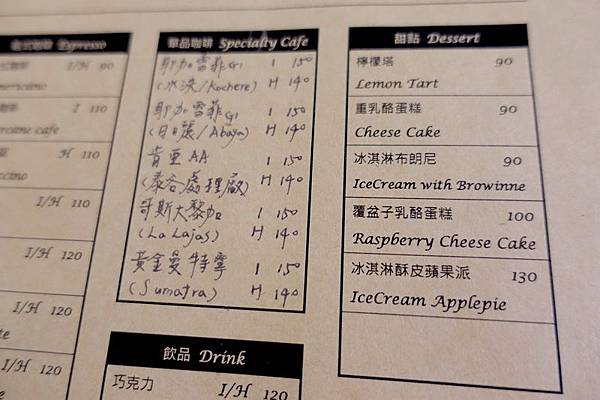 Espresso
I/H 90
ericano
I 110
ricane cafe
H 110
ccino
I/H 110
I/H 120
I/H 120
I/H 120
單品咖啡 Specialty Cafe
耶加雪菲G1 I 150
(水洗/Kochere) H 140
耶加雪菲G1 I 150
(日曬/Abaya) H 140
肯亞AA I 150
(泰谷處理廠) H 140
哥斯大黎加 I 150
(La Lajas) H 140
黃金曼特寧 I 150
(Sumatra) H 140
飲品 Drink
巧克力 I/H 120
甜點 Dessert
檸檬塔 90
Lemon Tart
重乳酪蛋糕 90
Cheese Cake
冰淇淋布朗尼 90
IceCream with Browinne
覆盆子乳酪蛋糕 100
Raspberry Cheese Cake
冰淇淋酥皮蘋果派 130
IceCream Applepie